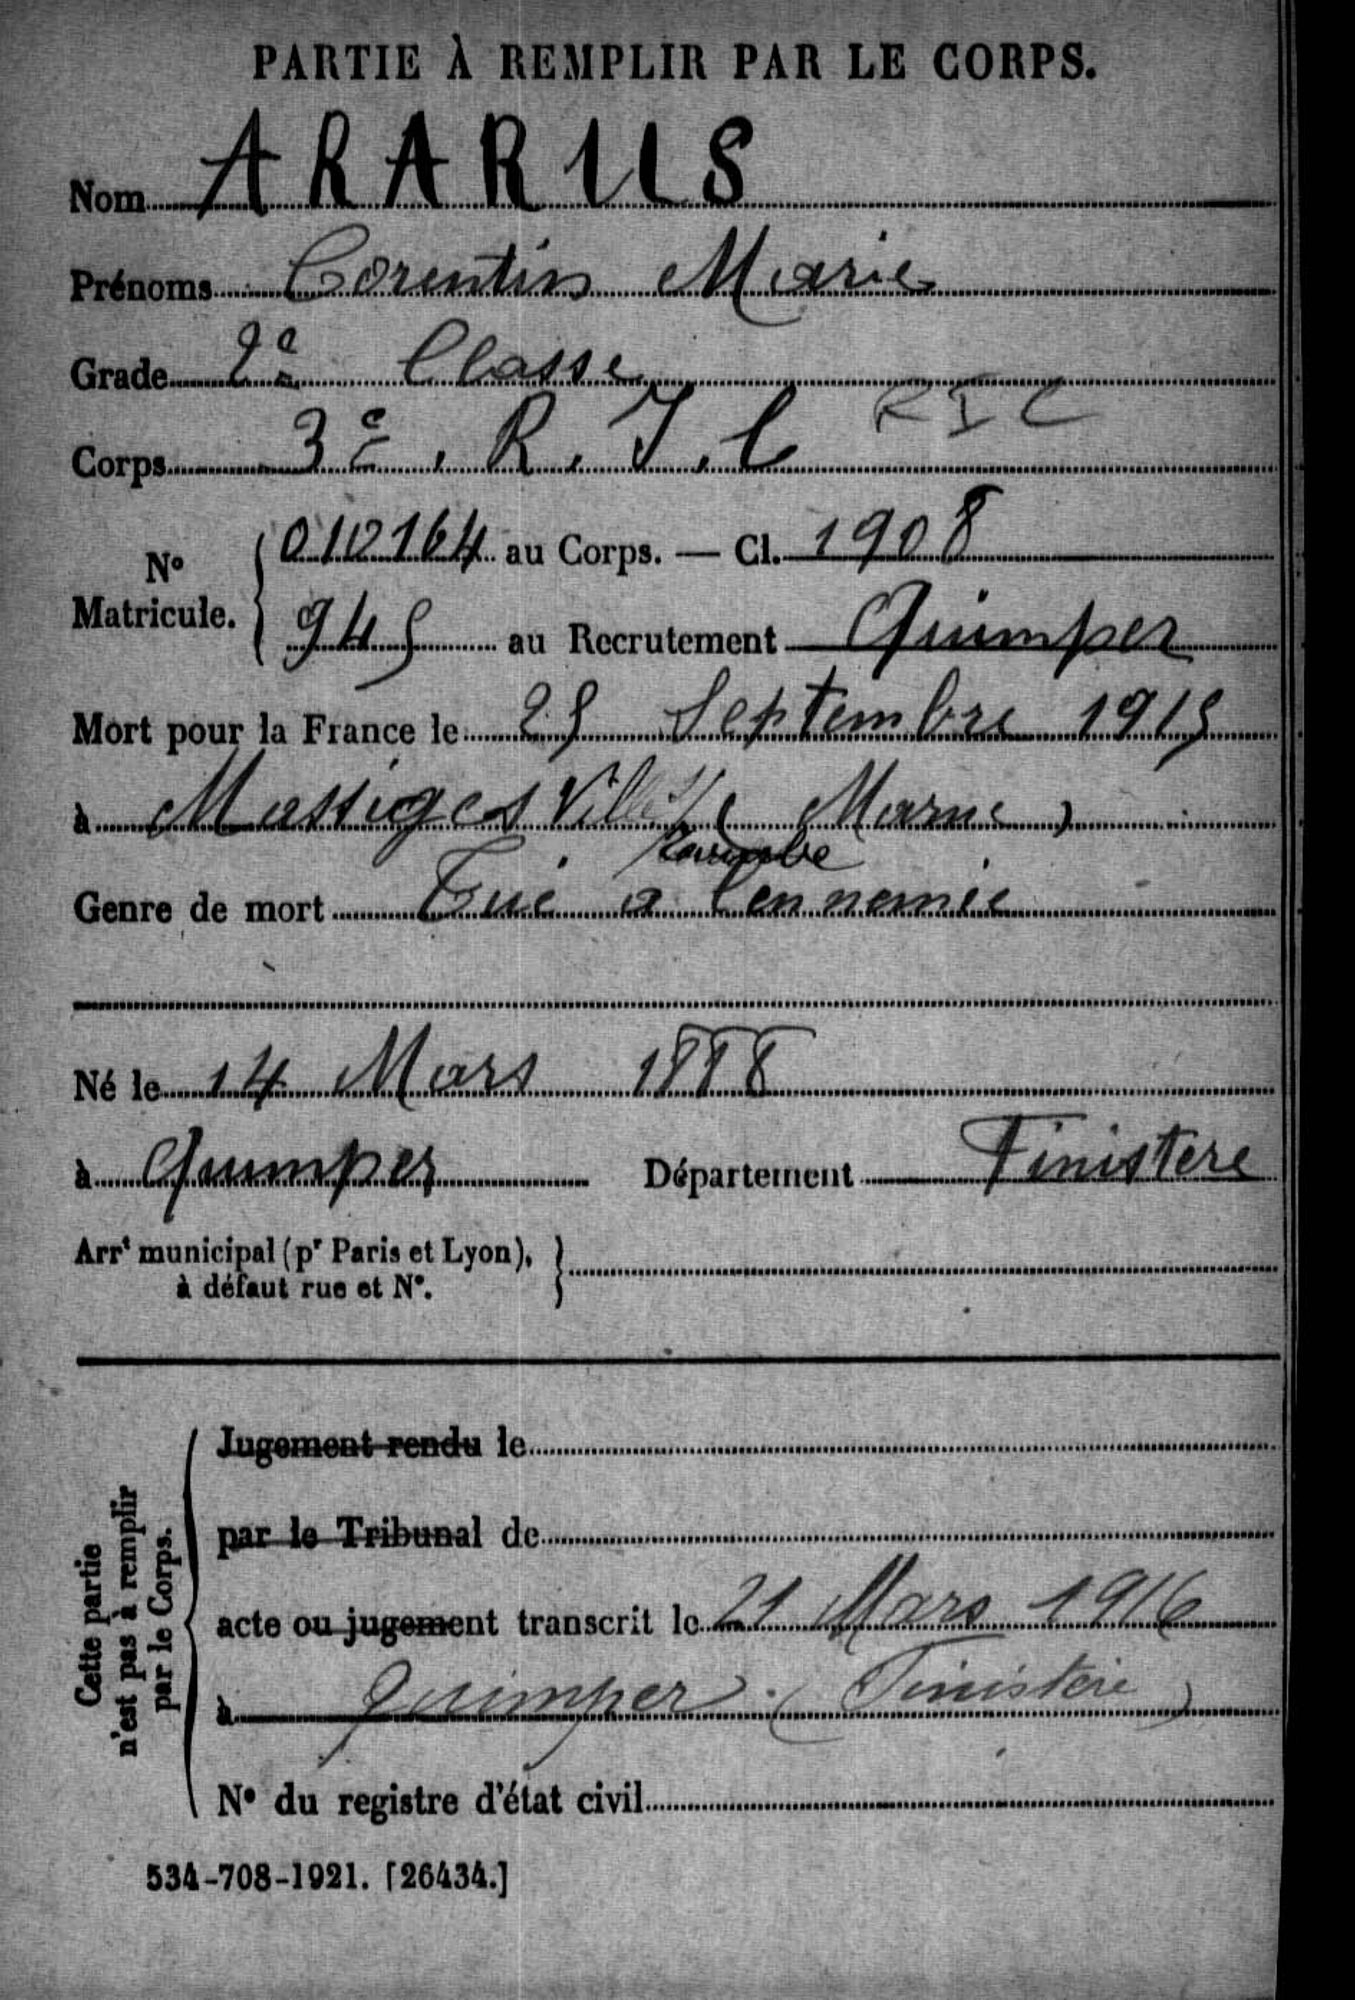 PARTIE À REMPLIR PAR LE CORPS.
Nom ARARUS
Prénoms Corentin Marie
Grade 2e Classe
Corps 3e. R. I. C RIC
N° Matricule. { 010164 au Corps. — Cl. 1908
945 au Recrutement Quimper
Mort pour la France le 25 Septembre 1915
à Massiges (Marne)
Genre de mort Tué a l'ennemie
Né le 14 Mars 1888
à Quimper Département Finistere
Arrt municipal (pr Paris et Lyon), à défaut rue et N°. }
Cette partie n'est pas à remplir par le Corps.
Jugement rendu le
par le Tribunal de
acte ou jugement transcrit le 21 Mars 1916
à Quimper (Finistère)
N° du registre d'état civil
534-708-1921. [26434.]